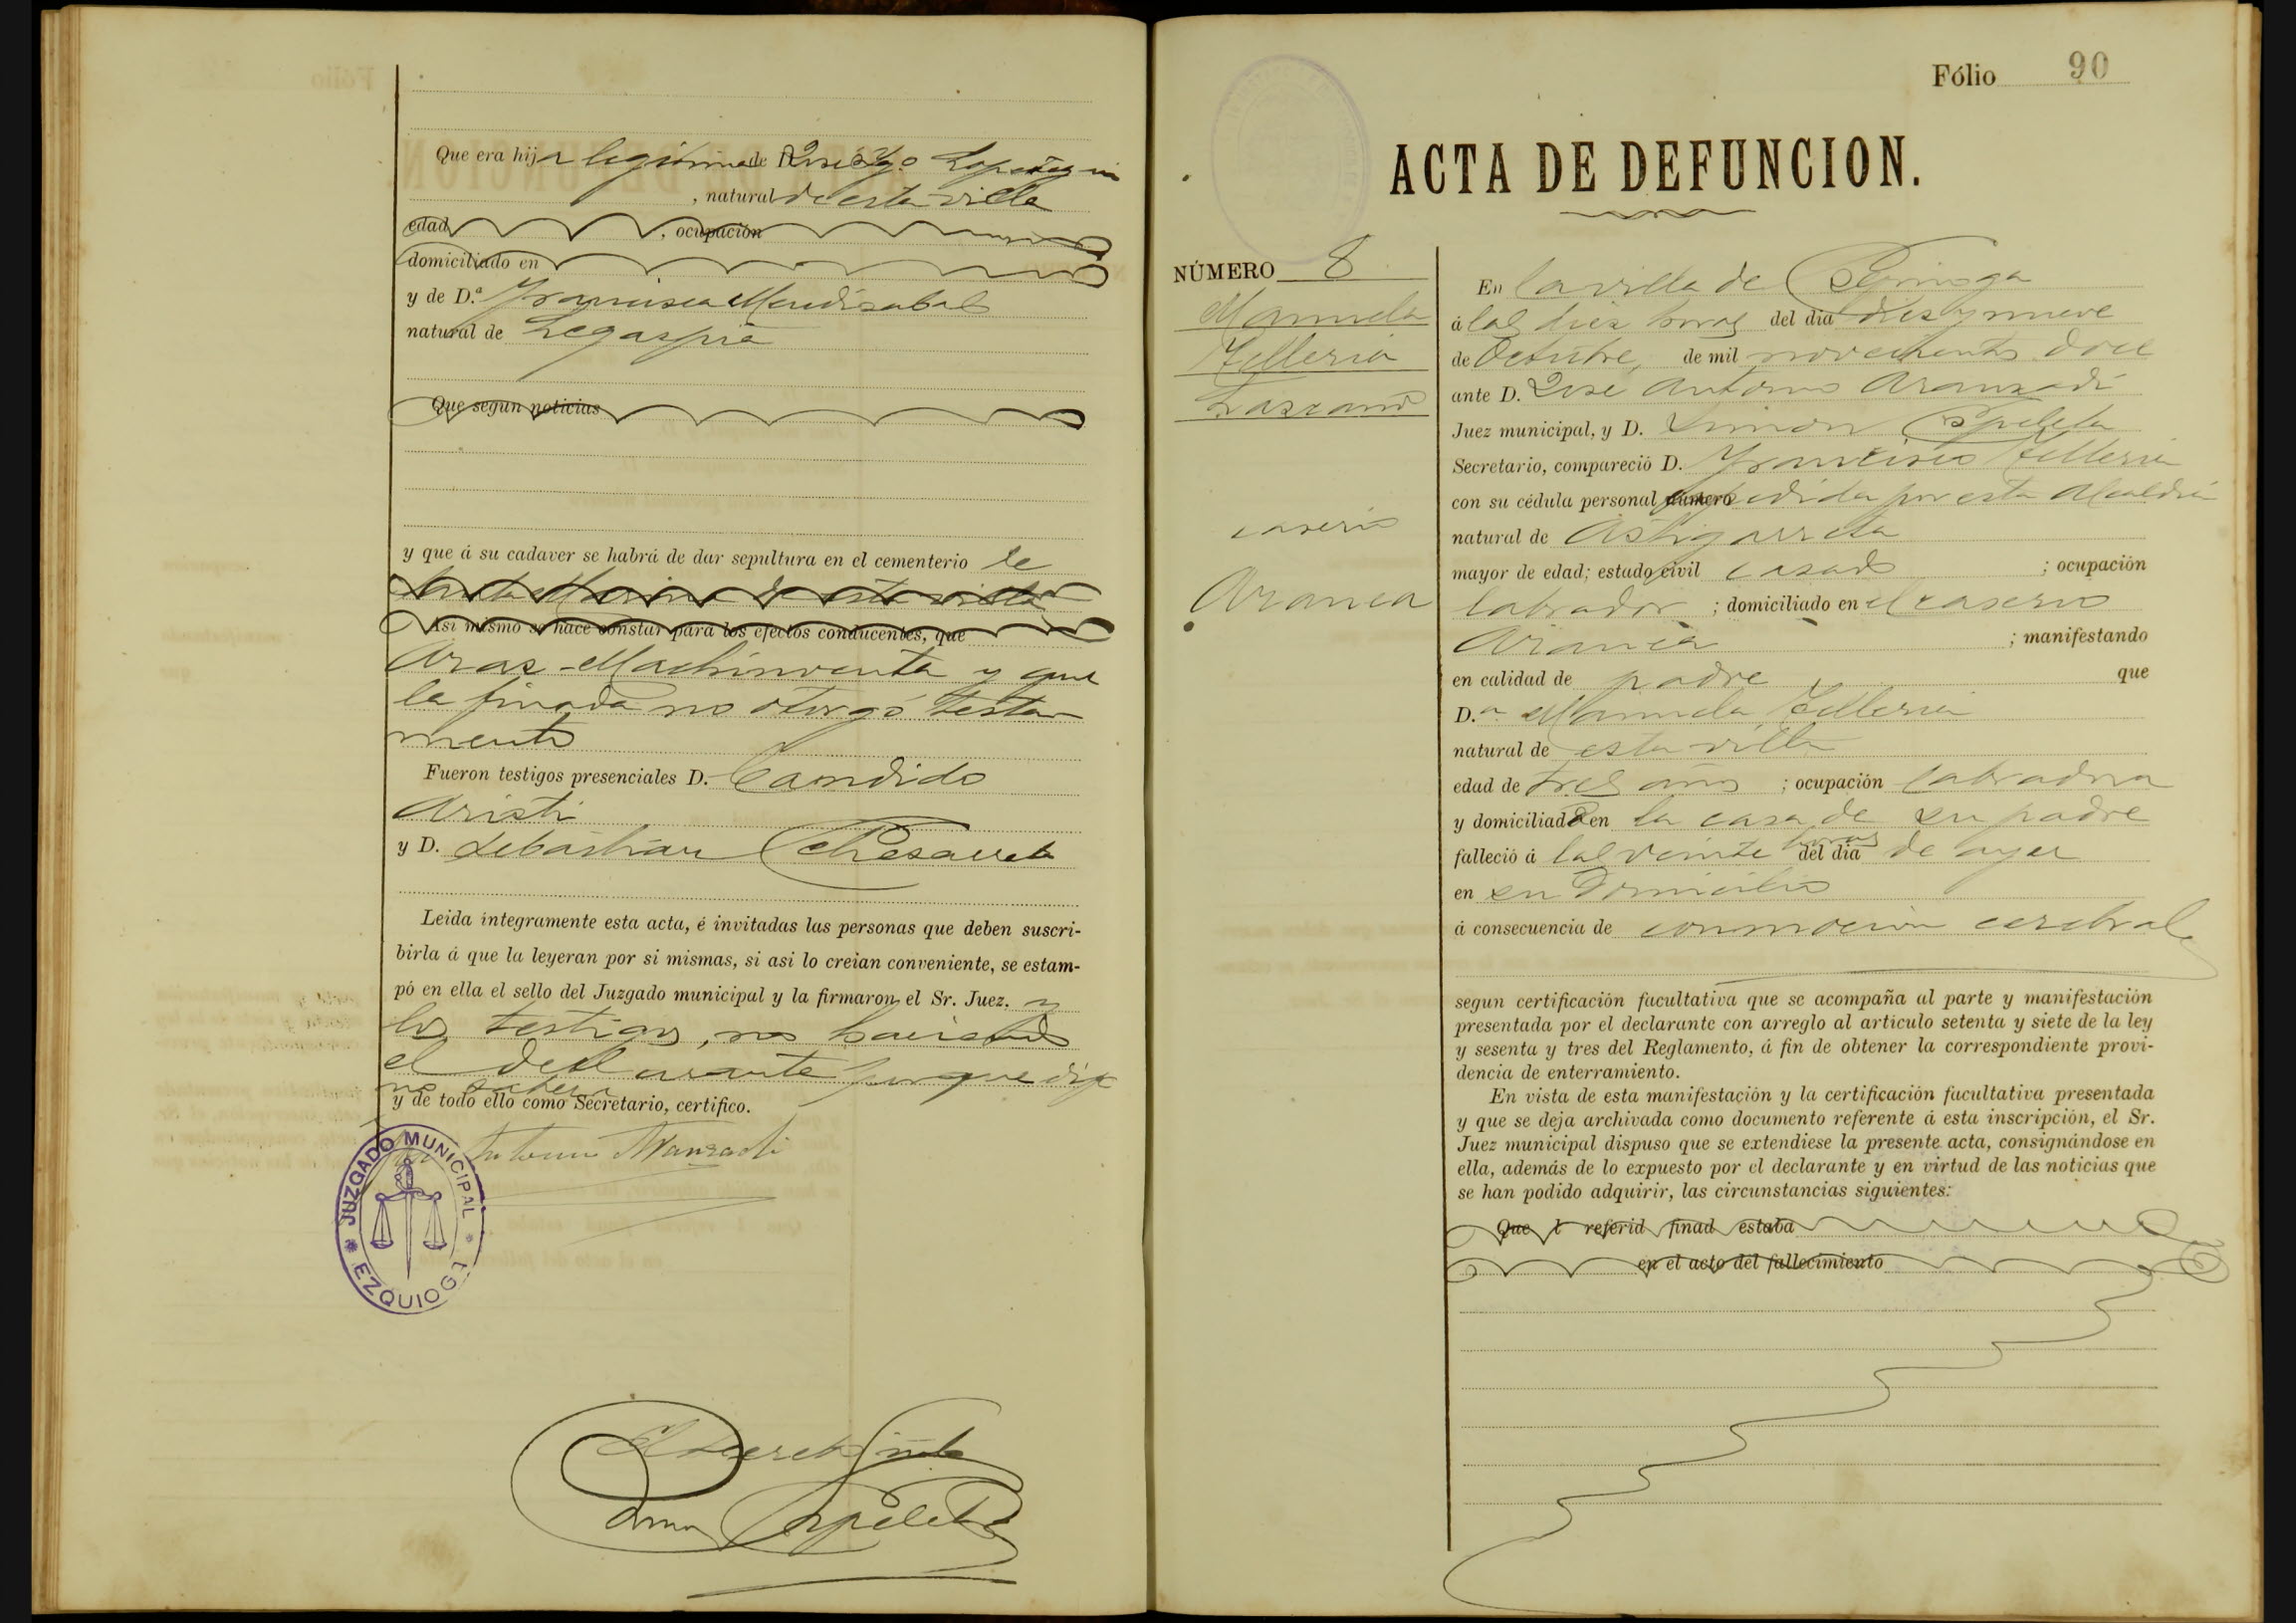 Que era hija legitima de José Ygo. Lopetegui
, natural de esta villa
edad , ocupación
domiciliado en
y de D.ª Francisca Mendizabal
natural de Legaspia
Que segun noticias
y que á su cadaver se habrá de dar sepultura en el cementerio de
Santa Marina de esta villa
Asi mismo se hace constar para los efectos conducentes, que
Aras-Machinventa y que
la finada no otorgó testa
mento
Fueron testigos presenciales D. Candido
Aristi
y D. Sebastian Echezarreta
Leida íntegramente esta acta, é invitadas las personas que deben suscri-
birla á que la leyeran por si mismas, si asi lo creian conveniente, se estam-
pó en ella el sello del Juzgado municipal y la firmaron el Sr. Juez. y
los testigos, no haciendo
el declarante porque dijo
no saber
y de todo ello como Secretario, certifico.
Antonio Aranzadi
JUZGADO MUNICIPAL
* EZQUIOGA *
El Secretario
Simon Ezpeleta
Fólio 90
ACTA DE DEFUNCION.
NÚMERO 8
Manuela
Telleria
Lazcano
caserio
Aranea
En la villa de Ezquioga
á las diez horas del dia diez y nueve
de Octubre, de mil novecientos doce
ante D. José Antonio Aranzadi
Juez municipal, y D. Simon Ezpeleta
Secretario, compareció D. Francisco Telleria
con su cédula personal número expedida por esta Alcaldia
natural de Astigarreta
mayor de edad; estado civil casado ; ocupación
labrador ; domiciliado en el caserio
Aranea ; manifestando
en calidad de padre que
D.ª Manuela Telleria
natural de esta villa
edad de tres años ; ocupación labradora
y domiciliada en la casa de su padre
falleció á las veinte horas del dia de ayer
en su domicilio
á consecuencia de conmocion cerebral
segun certificación facultativa que se acompaña al parte y manifestación
presentada por el declarante con arreglo al artículo setenta y siete de la ley
y sesenta y tres del Reglamento, á fin de obtener la correspondiente provi-
dencia de enterramiento.
En vista de esta manifestación y la certificación facultativa presentada
y que se deja archivada como documento referente á esta inscripción, el Sr.
Juez municipal dispuso que se extendiese la presente acta, consignándose en
ella, además de lo expuesto por el declarante y en virtud de las noticias que
se han podido adquirir, las circunstancias siguientes:
Que l referid finad estaba
en el acto del fallecimiento